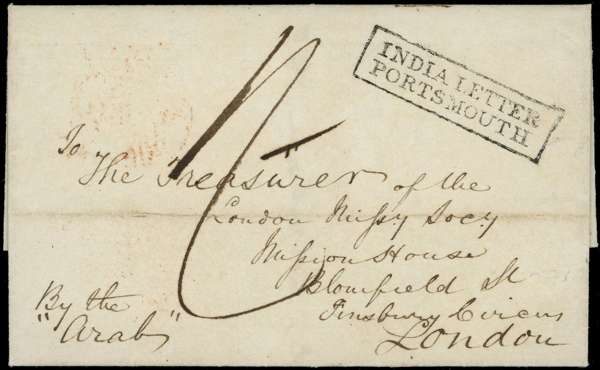 INDIA LETTER
PORTSMOUTH
To
The Treasurer of the
London Missy Socy
Mission House
Blomfield St
Finsbury Circus
London
By the
"Arab"